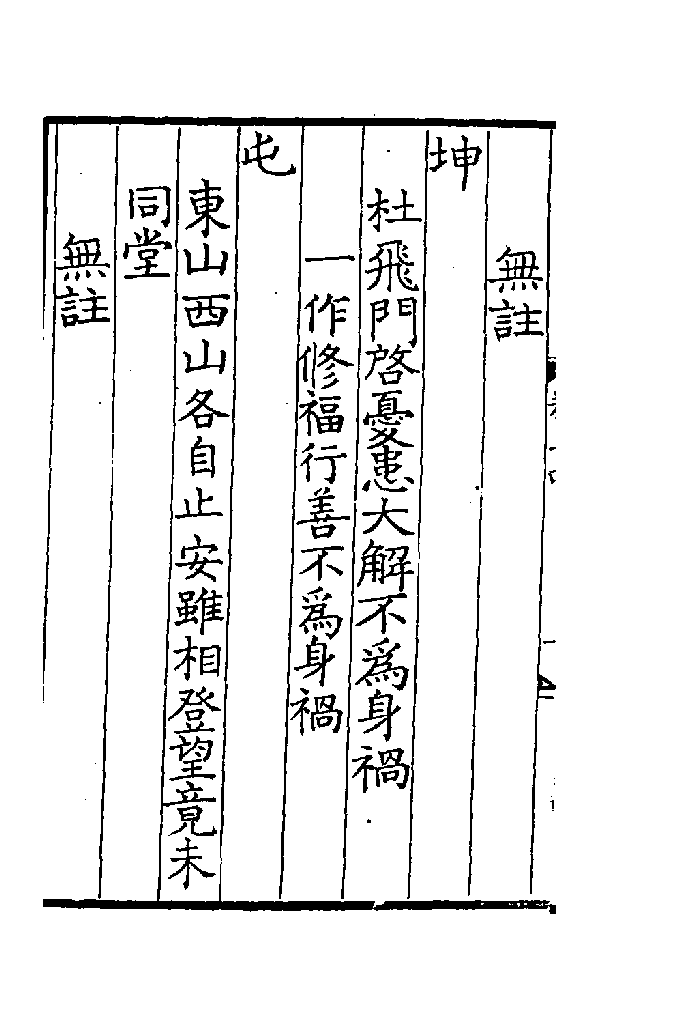 無註
坤
杜飛門啓憂患大解不為身禍
一作修福行善不為身禍
屯
東山西山各自止安雖相登望竟未
同堂
無註